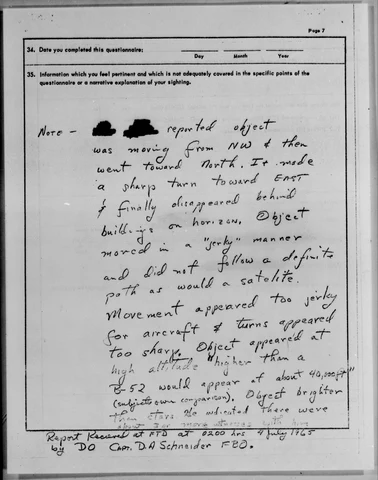 Page 7
34. Date you completed this questionnaire:
Day Month Year
35. Information which you feel pertinent and which is not adequately covered in the specific points of the
questionnaire or a narrative explanation of your sighting.
Note - reported object
was moving from NW & then
went toward North. It made
a sharp turn toward EAST
& finally disappeared behind
buildings on horizon. Object
moved in a "jerky" manner
and did not follow a definite
path as would a satolite.
Movement appeared too jerky
for aircraft & turns appeared
too sharp. Object appeared at
high altitude "higher than a
B-52 would appear at about 40,000 ft"
(subjects own comparison). Object brighter
than stars. He indicated there were
about more witnesses with him
Report Received at FTD at 0200 hrs 9 July 1965
by DO Capt. D.A Schneider FBO.